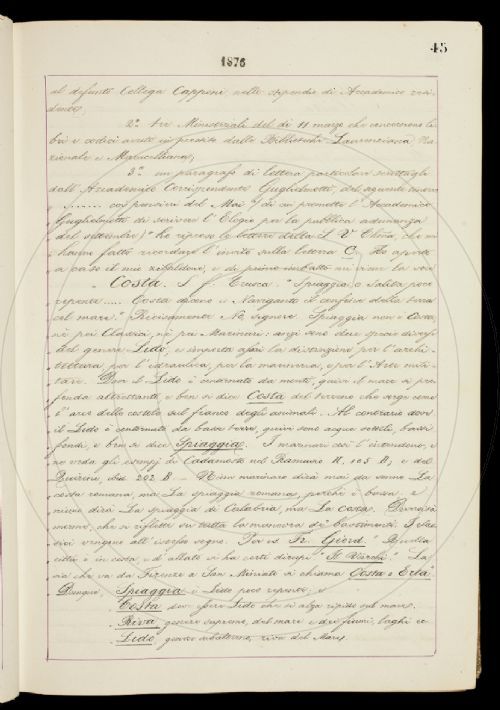 45
1876
al defunto Collega Capponi nello stipendio di Accademico resi-
dente;
2° tre Ministeriali del dì 11 marzo che concernono li-
bri e codici avuti in prestito dalle Biblioteche Laurenziana, Na-
zionale e Marucelliana;
3° un paragrafo di lettera particolare scrittagli
dall'Accademico Corrispondente Guglielmotti, del seguente tenore
" ....... coi pensieri del Mai (di cui promette l'Accademico
Guglielmotti di scrivere l'Elogio per la pubblica adunanza
del settembre) ho ripreso le lettere della S. V. Ch.ma, che mi
hanno fatto ricordare l'invito sulla lettera C. Ho aperto
a caso il mio zibaldone, e di primo imbatto mi viene la voce
Costa. S. f. Crusca. " Spiaggia o Salita poco
repente ..... Costa dicono i Naviganti il confine della terra
col mare." Precisamente No signore. Spiaggia non è Costa,
nè pei Classici, nè pei Marinari: anzi sono due specie diverse
del genere Lido, e importa assai la distinzione per l'archi-
tettura, per l'idraulica, per la marineria, e per l'Arte mili-
tare. Dove il Lido è contornato da monti, quivi il mare si pro-
fonda altrettanto, e ben si dice Costa del terreno che sorge come
l'arco delle costole sul fianco degli animali. Al contrario dove
il Lido è contornato da basse terre, quivi sono acque sottili, bassi
fondi, e ben si dice Spiaggia. I marinari così l'intendono, e
ne veda gli esempj di Cadamosto nel Ramusio
costa romana, ma La spiaggia romana, perchè è bassa, e
niuno dirà La spiaggia di Calabria, ma La costa.
che si riflette su tutta la manovra de' bastimenti. I Clas-
sici vengono all'istesso segno.
città è in costa e d'allato si ha certi dirupi " Il Varchi " La
via che va da Firenze a San Miniato si chiama Costa o Erta"
Dunque, Spiaggia è Lido poco repente; e
Costa deve essere Lido che si alza ripido sul mare.
Riva, genere supremo, del mare e dei fiumi, laghi ec.
Lido, genere subalterno, riva del Mare.